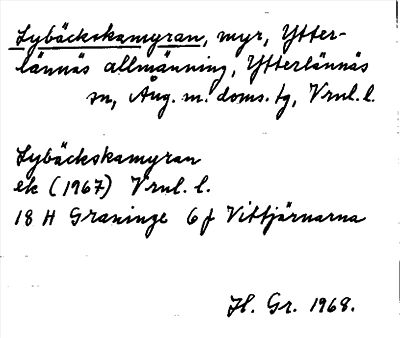 Lybäckskamyran, myr, Ytter-
lännäs allmänning, Ytterlännäs
sn, Ång. m. doms. tg, Vrnl. l.
Lybäckskamyran
ek (1967) Vrnl. l.
18 H Graninge 6f Vittjärnarna
Hl. Gr. 1968.